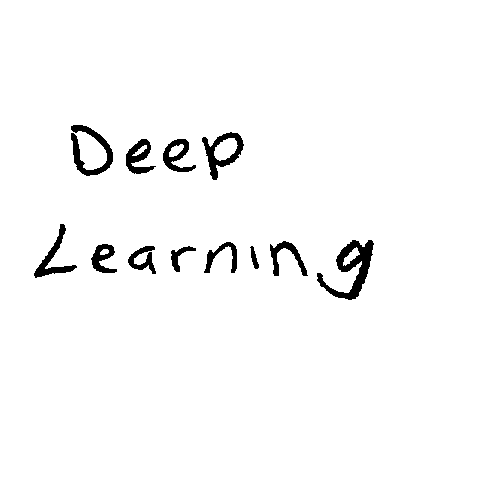 Deep
Learning